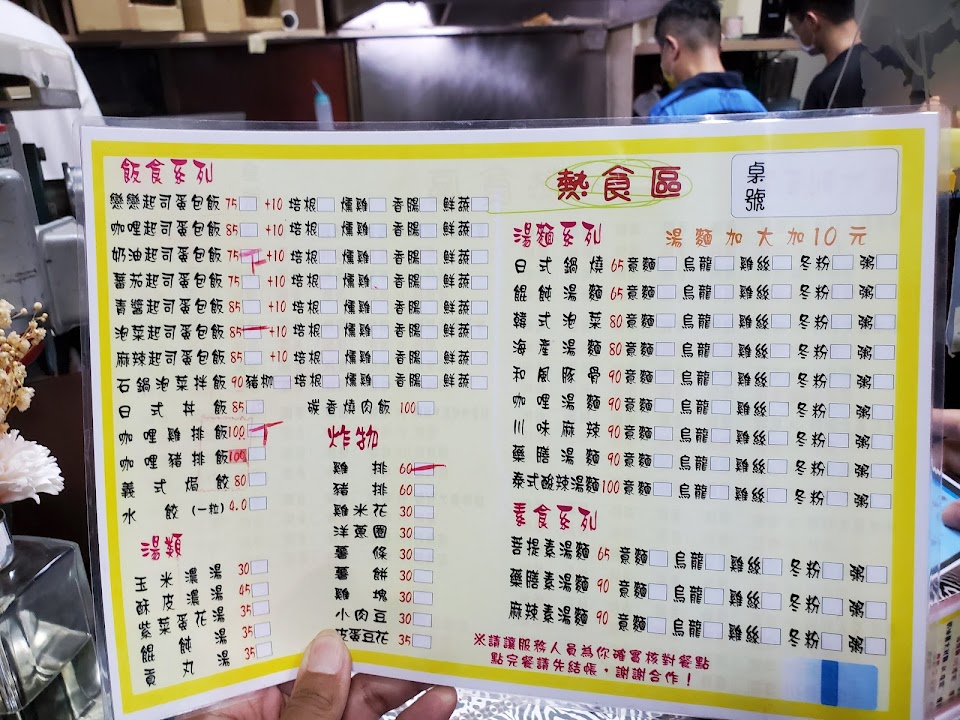 熱食區
桌號
飯食系列
戀戀起司蛋包飯 75 +10 培根 燻雞 香腸 鮮蔬
咖哩起司蛋包飯 85 培根 燻雞 香腸 鮮蔬
奶油起司蛋包飯 75 +10 培根 燻雞 香腸 鮮蔬
蕃茄起司蛋包飯 75 +10 培根 燻雞 香腸 鮮蔬
青醬起司蛋包飯 85 +10 培根 燻雞 香腸 鮮蔬
泡菜起司蛋包飯 85 +10 培根 燻雞 香腸 鮮蔬
麻辣起司蛋包飯 85 +10 培根 燻雞 香腸 鮮蔬
石鍋泡菜拌飯 90 豬柳 培根 燻雞 香腸 鮮蔬
日式丼飯 85 碳香燒肉飯 100
咖哩雞排飯 100
咖哩豬排飯 100
義式焗飯 80
水餃(一粒) 0.0
湯類
玉米濃湯 30
酥皮濃湯 45
紫菜蛋花湯 35
餛飩湯 35
貢丸湯 35
炸物
雞排 60
豬排 60
雞米花 30
洋蔥圈 30
薯條 30
薯餅 30
雞塊 30
小肉豆 30
花蛋豆花 35
湯麵系列 湯麵加大加10元
日式鍋燒 65 意麵 烏龍 雞絲 冬粉 粥
餛飩湯麵 65 意麵 烏龍 雞絲 冬粉 粥
韓式泡菜 80 意麵 烏龍 雞絲 冬粉 粥
海產湯麵 80 意麵 烏龍 雞絲 冬粉 粥
和風豚骨 90 意麵 烏龍 雞絲 冬粉 粥
咖哩湯麵 90 意麵 烏龍 雞絲 冬粉 粥
川味麻辣 90 意麵 烏龍 雞絲 冬粉 粥
藥膳湯麵 90 意麵 烏龍 雞絲 冬粉 粥
泰式酸辣湯麵 100 意麵 烏龍 雞絲 冬粉 粥
素食系列
菩提素湯麵 65 意麵 烏龍 雞絲 冬粉 粥
藥膳素湯麵 90 意麵 烏龍 雞絲 冬粉 粥
麻辣素湯麵 90 意麵 烏龍 雞絲 冬粉 粥
※請讓服務人員為你確實核對餐點
點完餐請先結帳，謝謝合作！